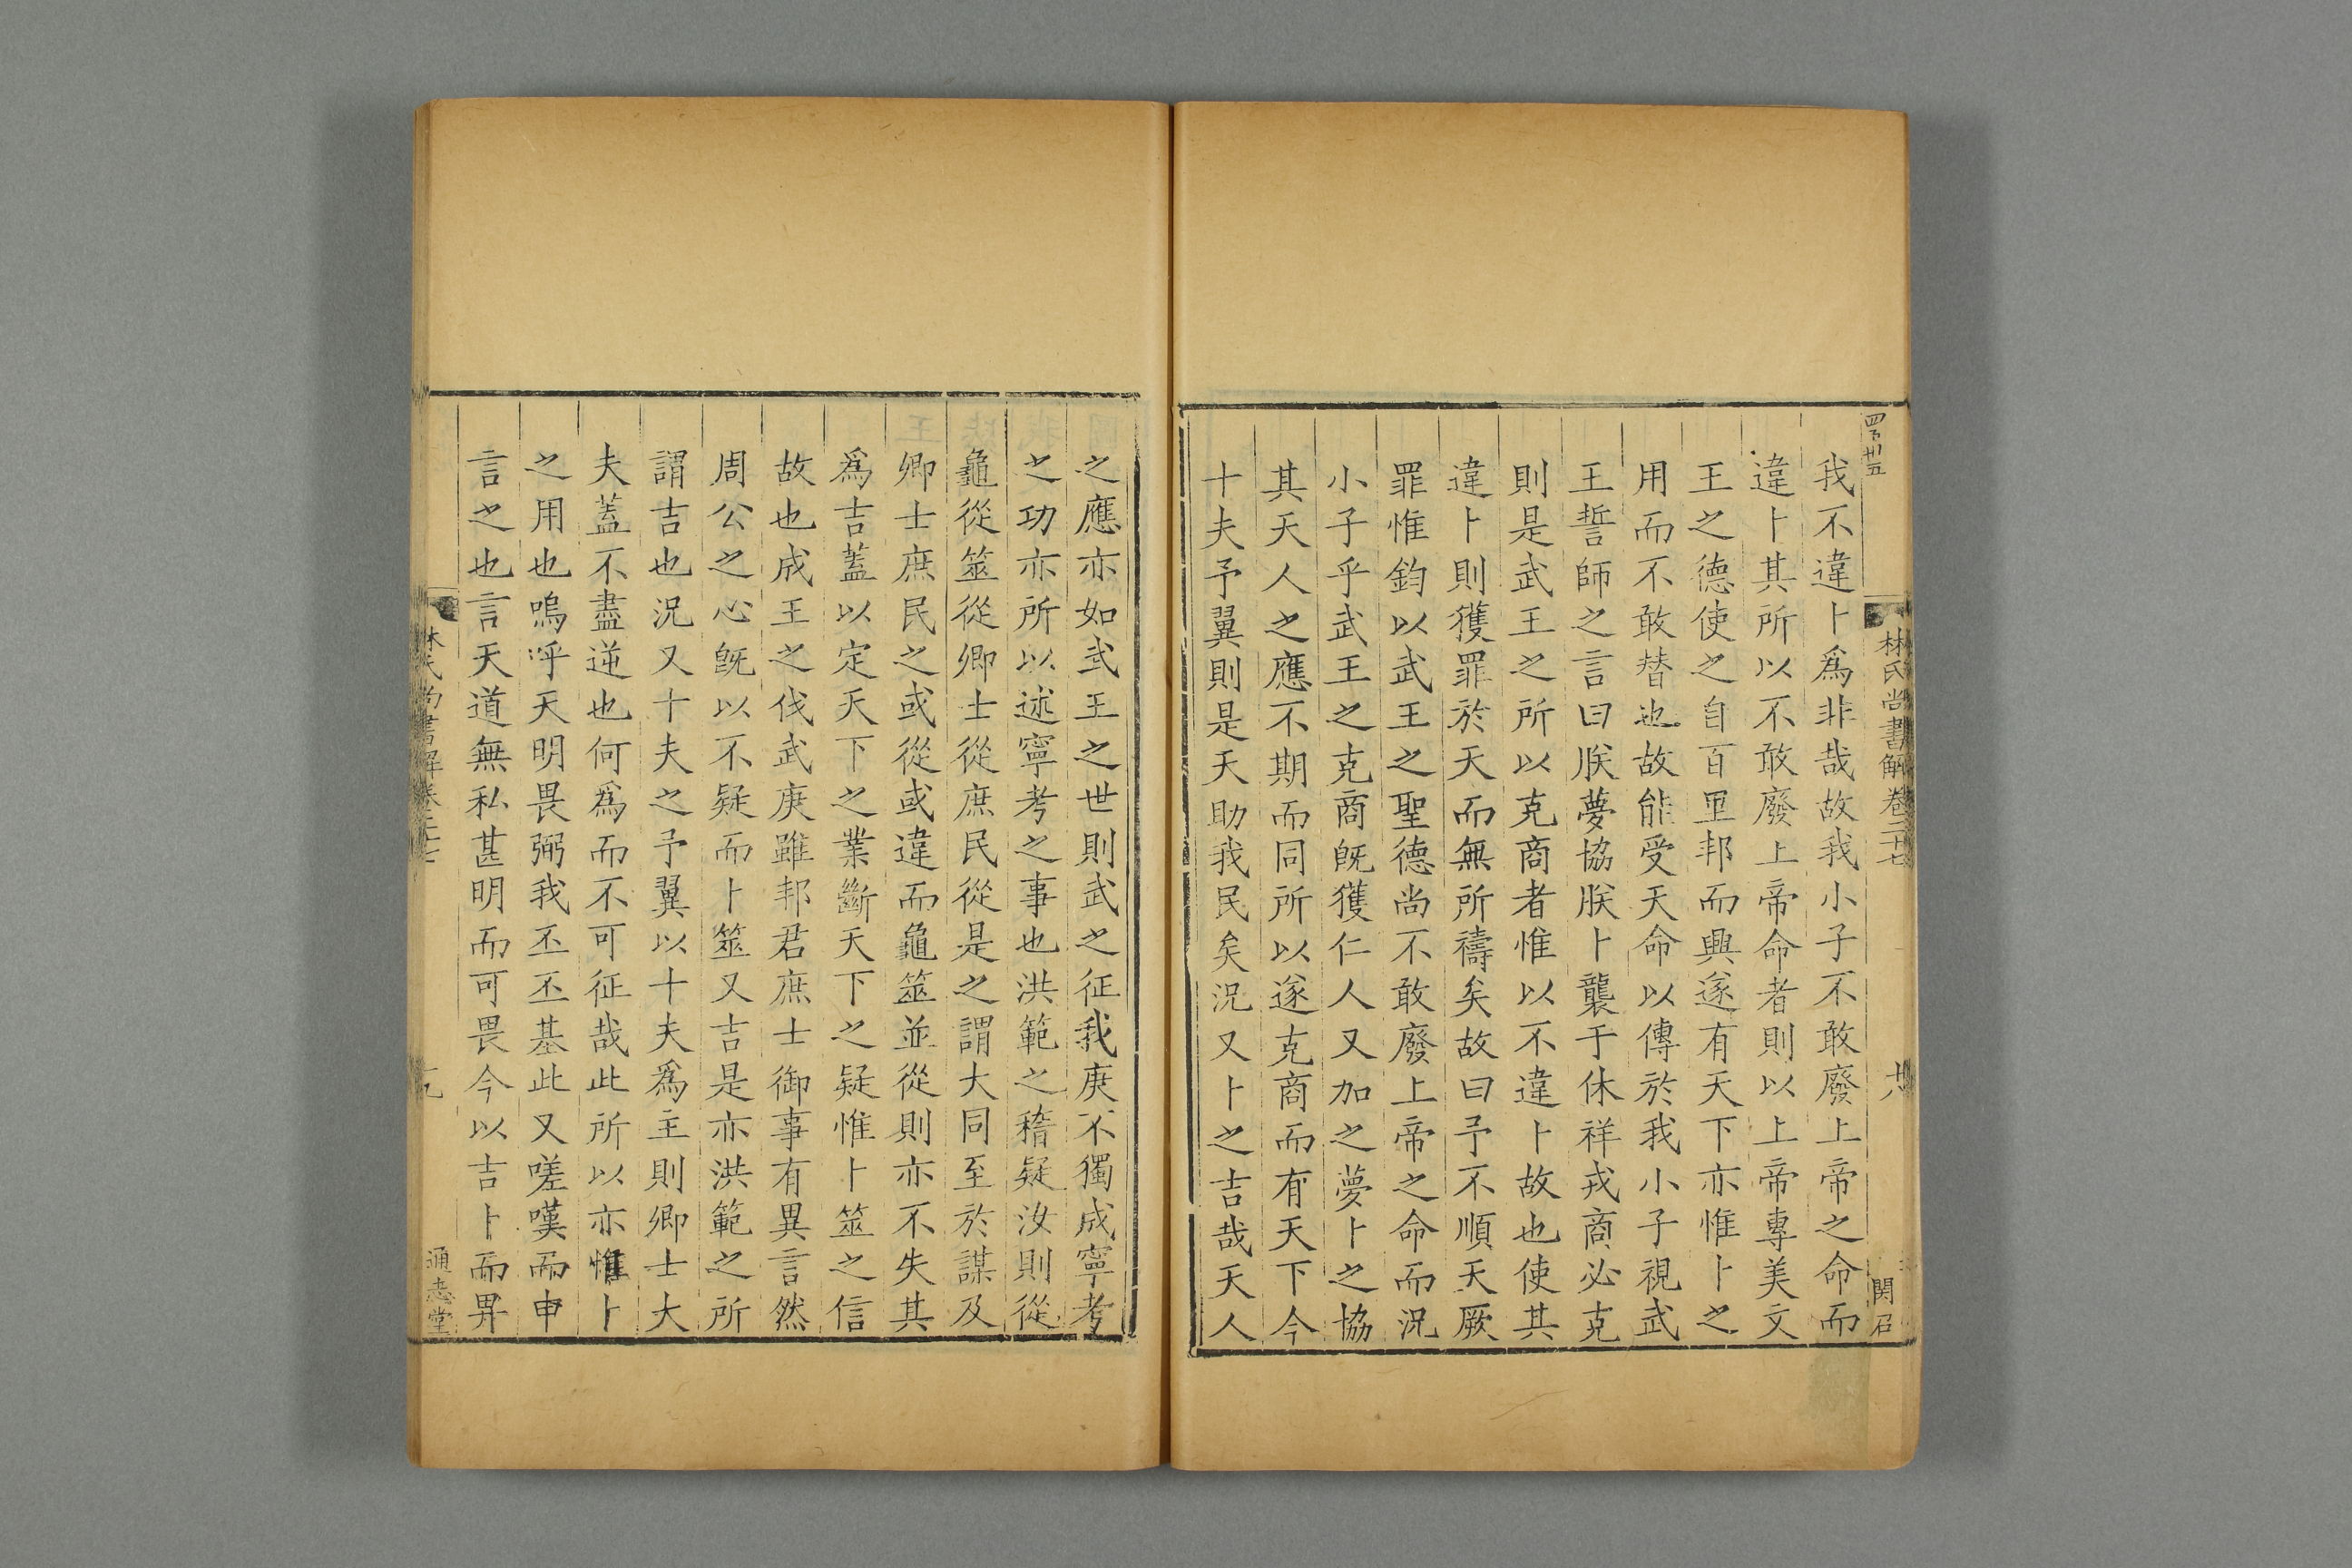 四百卅五
林氏尚書解卷二十七
関召
我不違卜爲非哉故我小子不敢廢上帝之命而
違卜其所以不敢廢上帝命者則以上帝專美文
王之德使之自百里邦而興遂有天下亦惟卜之
用而不敢替也故能受天命以傳於我小子視武
王誓師之言曰朕夢協朕卜襲于休祥戎商必克
則是武王之所以克商者惟以不違卜故也使其
違卜則獲罪於天而無所禱矣故曰予不順天厥
罪惟鈞以武王之聖德尚不敢廢上帝之命而況
小子乎武王之克商旣獲仁人又加之夢卜之協
其天人之應不期而同所以遂克商而有天下今
十夫予翼則是天助我民矣況又卜之吉哉天人
之應亦如武王之世則武之征我庚不獨成寧考
之功亦所以述寧考之事也洪範之稽疑汝則從
龜從筮從卿士從庶民從是之謂大同至於謀及
卿士庶民之或從或違而龜筮並從則亦不失其
爲吉蓋以定天下之業斷天下之疑惟卜筮之信
故也成王之伐武庚雖邦君庶士御事有異言然
周公之心旣以不疑而卜筮又吉是亦洪範之所
謂吉也況又十夫之予翼以十夫爲主則卿士大
夫蓋不盡逆也何爲而不可征哉此所以亦惟卜
之用也嗚呼天明畏弼我丕丕基此又嗟嘆而申
言之也言天道無私甚明而可畏今以吉卜而畀
林氏尚書解卷二十七
通志堂